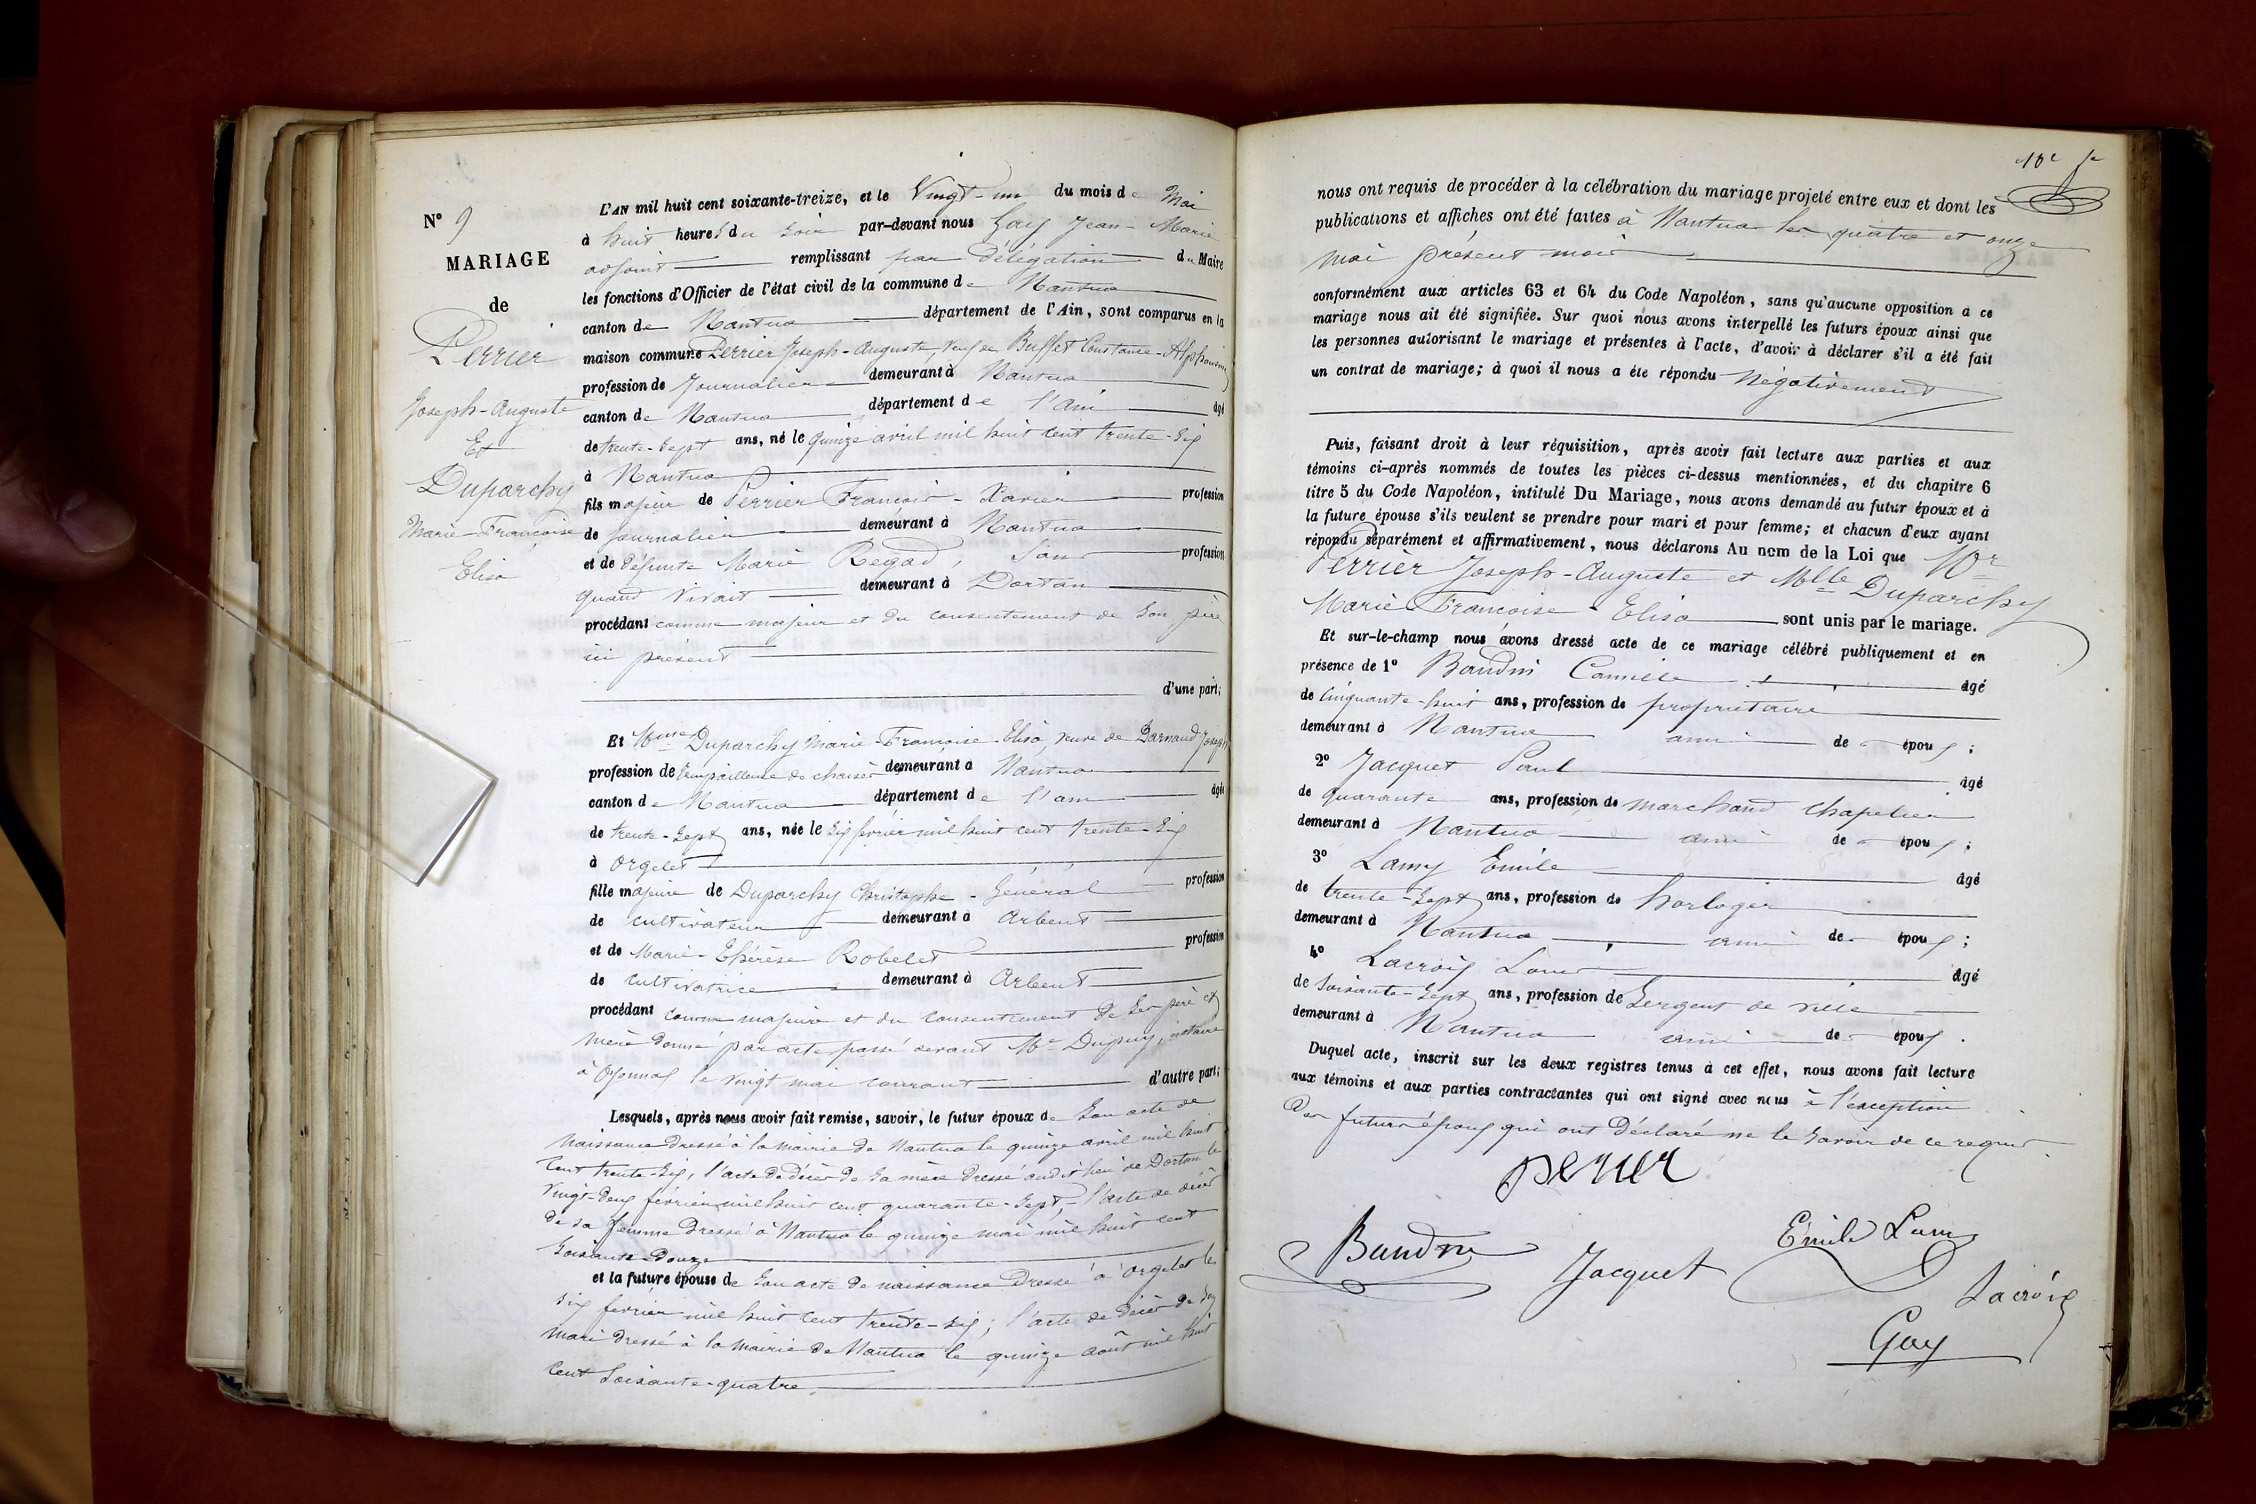 N° 9
MARIAGE
de
Perrier
Joseph-Auguste
Et
Duparchy
Marie-Françoise
Elisa
L'AN mil huit cent soixante-treize, et le Vingt-un du mois de Mai
à huit heures du Soir par-devant nous Gay Jean-Marie
adjoint remplissant par délégation du Maire
les fonctions d'Officier de l'état civil de la commune de Nantua
canton de Nantua département de l'Ain, sont comparus en la
maison commune Perrier Joseph-Auguste, veuf de Buffet Constance-Alphonsine
profession de Journalier demeurant à Nantua
canton de Nantua département de l'Ain âgé
de trente-sept ans, né le quinze avril mil huit cent trente-six
à Nantua
fils majeur de Perrier François-Xavier profession
de journalier demeurant à Nantua
et de défunte Marie Regad, sans profession
quand vivait demeurant à Dortan
procédant comme majeur et du consentement de son père
ici présent
d'une part;
Et Mme Duparchy Marie-Françoise-Elisa, veuve de Barnaud Joseph
profession de rempailleuse de chaises demeurant à Nantua
canton de Nantua département de l'ain âgée
de trente-sept ans, née le six février mil huit cent trente-six
à Orgelet
fille majeure de Duparchy Christophe-Général profession
de cultivateur demeurant à Arbent
et de Marie-Thérèse Robelet profession
de cultivatrice demeurant à Arbent
procédant comme majeure et du consentement de ses père et
mère donné par acte passé devant Me Dupuy, notaire
à Oyonnax le vingt mai courant d'autre part;
Lesquels, après nous avoir fait remise, savoir, le futur époux de son acte de
naissance dressé à la mairie de Nantua le quinze avril mil huit
cent trente-six, l'acte de décès de sa mère dressé audit lieu de Dortan le
vingt-deux février mil huit cent quarante-sept, l'acte de décès
de sa femme dressé à Nantua le quinze mai mil huit cent
soixante-douze
et la future épouse de son acte de naissance dressé à Orgelet le
six février mil huit cent trente-six; l'acte de décès de son
mari dressé à la mairie de Nantua le quinze août mil huit
cent soixante-quatre.
nous ont requis de procéder à la célébration du mariage projeté entre eux et dont les
publications et affiches ont été faites à Nantua les quatre et onze
mai présent mois
conformément aux articles 63 et 64 du Code Napoléon, sans qu'aucune opposition à ce
mariage nous ait été signifiée. Sur quoi nous avons interpellé les futurs époux ainsi que
les personnes autorisant le mariage et présentes à l'acte, d'avoir à déclarer s'il a été fait
un contrat de mariage; à quoi il nous a été répondu Négativement
Puis, faisant droit à leur réquisition, après avoir fait lecture aux parties et aux
témoins ci-après nommés de toutes les pièces ci-dessus mentionnées, et du chapitre 6
titre 5 du Code Napoléon, intitulé Du Mariage, nous avons demandé au futur époux et à
la future épouse s'ils veulent se prendre pour mari et pour femme; et chacun d'eux ayant
répondu séparément et affirmativement, nous déclarons Au nom de la Loi que Mr
Perrier Joseph-Auguste et Mlle Duparchy
Marie Françoise-Elisa sont unis par le mariage.
Et sur-le-champ nous avons dressé acte de ce mariage célébré publiquement et en
présence de 1° Baudin Camille âgé
de Cinquante-huit ans, profession de propriétaire
demeurant à Nantua ami de époux;
2° Jacquet Paul âgé
de quarante ans, profession de marchand chapelier
demeurant à Nantua ami de époux;
3° Lamy Emile âgé
de trente-sept ans, profession de horloger
demeurant à Nantua ami de époux;
4° Lacroix Louis âgé
de soixante-sept ans, profession de Sergent de ville
demeurant à Nantua ami de époux.
Duquel acte, inscrit sur les deux registres tenus à cet effet, nous avons fait lecture
aux témoins et aux parties contractantes qui ont signé avec nous à l'exception
des futurs époux qui ont déclaré ne le savoir de ce requis.
perrier
Baudin
Jacquet
Emile Lamy
Lacroix
Gay